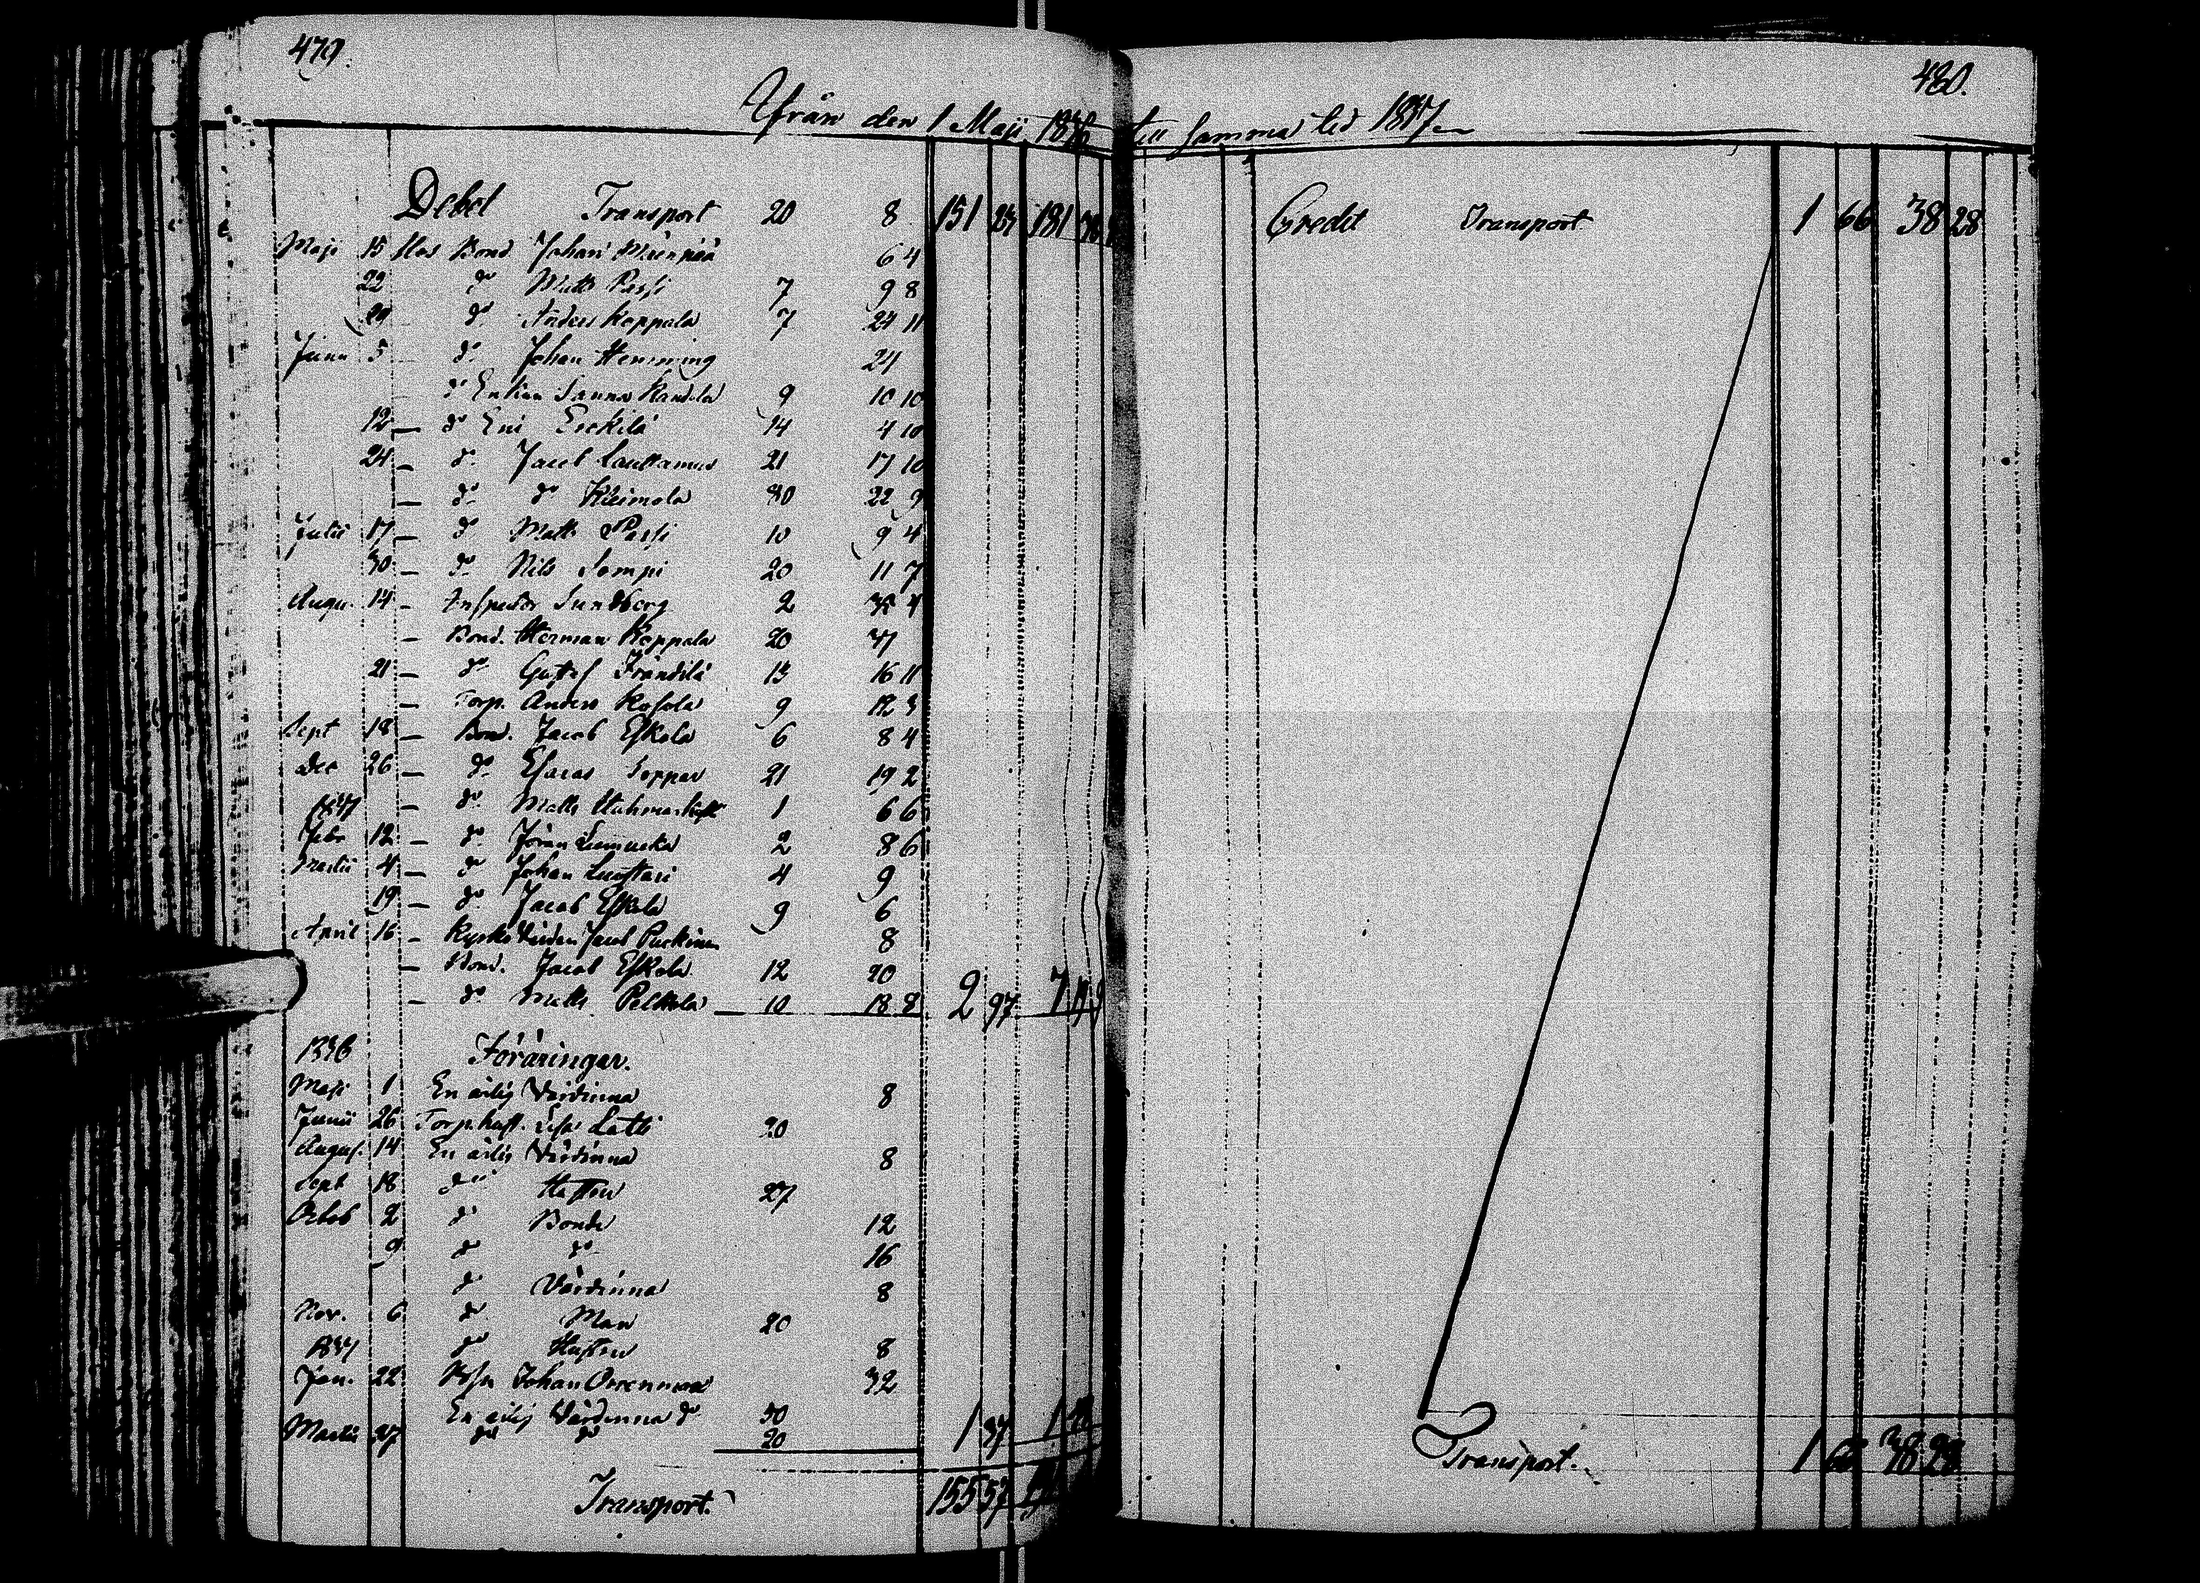 479.
Från den 1 Maji 1836
Debet Transport 20 8 151 23 181
Maji 15 Hos Bond Johan 6 4
22 do Matts Passi 7 9 8
29 do Anders Koppala 7 24 11
Junii 5 do Johan Hemming 24
do Enkan Sanna 9 10 10
12 do Eni Erckilä 14 4 10
24 do Jacob Lauttamus 21 17 10
do do 30 22 9
Julii 17 do Matts Passi 10 9 4
30 do Nils Sompi 20 11 7
Augu. 14 Inspector Sundberg 2 35 4
Bond. Herman Koppala 20
21 do Gustaf Frändilä 13 16 11
Torp. Anders Kosola 9 12 3
Sept 18 Bond. Jacob Eskola 6 8 4
Dec 26 do Esaias Soppar 21 19 2
1837 do Matts 1 6 6
Febr 12 do Jöran 2 8 6
Martii 4 do Johan Luostari 4 9
19 do Jacob Eskola 9 6
April 16 Kyrko Värden Jacob 8
Bond. Jacob Eskola 12 20
do Matts Peltola 10 18 8 2 97 7
1836 Föräringar.
Maji 1 En ärlig Värdinna 8
Junii 26 Torp.hust. Lisa Latti 20
Augus. 14 En ärlig Värdinna 8
Sept 18 do Hustru 27
Octob 2 do Bonde 12
9 do do 16
do Värdinna 8
Nov. 6 do Man 20
1837 do Hustru 8
Jan. 22 Johan Orrenmaa 32
En ärlig Värdinna do 30
Martii 27 do do 20 1 37 1
Transport. 155 57
480.
till samma tid 1837
Credit Transport 1 66 38 28
Transport. 1 66 38 28